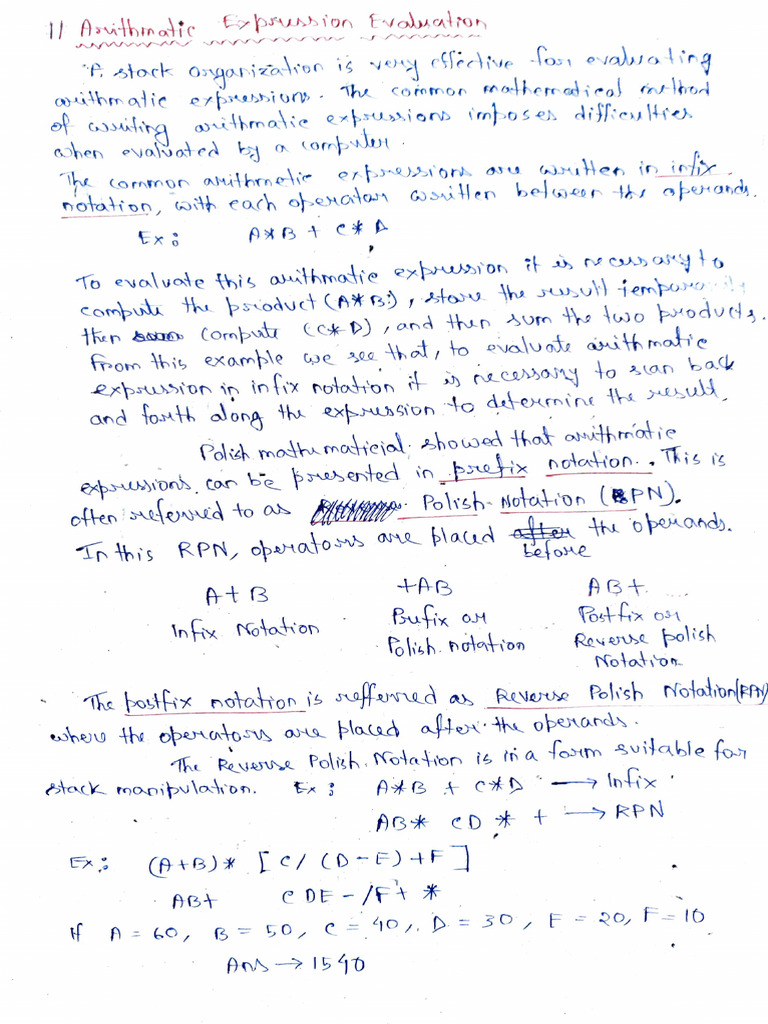 11 Arithmatic Expression Evaluation
A stack organization is very effective for evaluating
arithmatic expressions. The common mathematical method
of writing arithmatic expressions imposes difficulties
when evaluated by a computer.
The common arithmetic expressions are written in infix
notation, with each operator written between the operands.
Ex: A*B + C*D
To evaluate this arithmatic expression it is necessary to
compute the product (A*B), store the result temporarily
then compute (C*D), and then sum the two products.
From this example we see that, to evaluate arithmatic
expression in infix notation it is necessary to scan back
and forth along the expression to determine the result.
Polish mathematicial showed that arithmatic
expressions can be presented in prefix notation. This is
often referred to as Polish Notation (PN).
In this RPN, operators are placed after the operands.
before
A+B +AB AB+
Infix Notation Prefix or Postfix or
Polish notation Reverse polish
Notation
The postfix notation is refferred as Reverse Polish Notation (RPN)
where the operators are placed after the operands.
The Reverse Polish Notation is in a form suitable for
stack manipulation. Ex: A*B + C*D → Infix
AB* CD * + → RPN
Ex: (A+B)* [C/ (D-E)+F]
AB+ CDE-/F+ *
If A=60, B=50, C=40, D=30, E=20, F=10
Ans → 1540